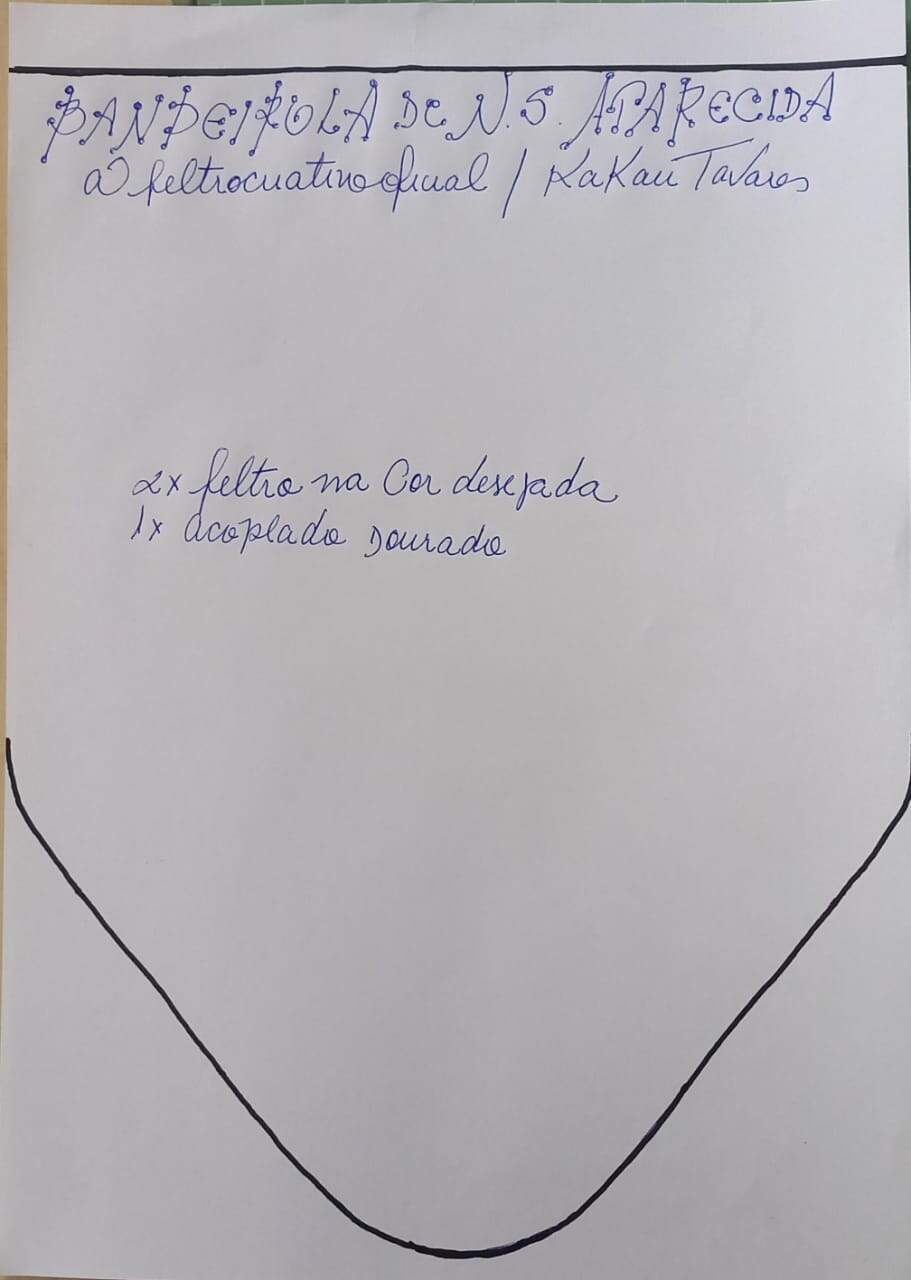 BANDEIROLA DE N. S. APARECIDA
@feltrocriativooficial / KaKau Tavares
2x feltro na Cor desejada
1x acoplado Dourado